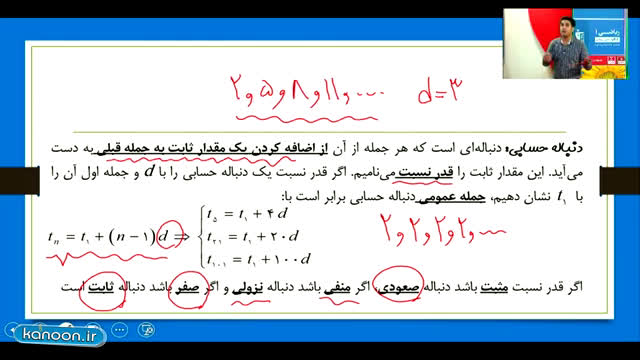 ریاضی ۱
۲ و ۵ و ۸ و ۱۱ و ... d=۳
دنباله حسابی: دنباله‌ای است که هر جمله از آن از اضافه کردن یک مقدار ثابت به جمله قبلی به دست
می‌آید. این مقدار ثابت را قدر نسبت می‌نامیم. اگر قدر نسبت یک دنباله حسابی را با d و جمله اول آن را
با t۱ نشان دهیم، جمله عمومی دنباله حسابی برابر است با:
t۵ = t۱ + ۴d
tn = t۱ + (n − ۱)d ⇒ { t۲۱ = t۱ + ۲۰d
t۱۰۱ = t۱ + ۱۰۰d
۲ و ۲ و ۲ و ۲ و ...
اگر قدر نسبت مثبت باشد دنباله صعودی، اگر منفی باشد دنباله نزولی و اگر صفر باشد دنباله ثابت است
kanoon.ir